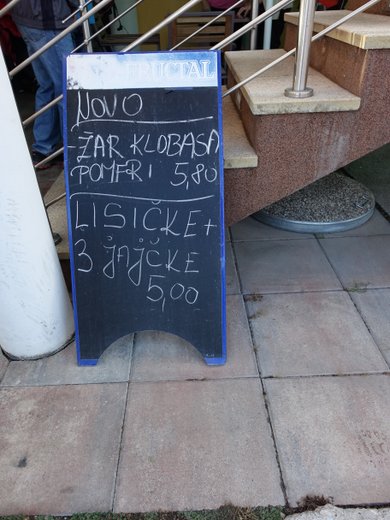 FRUCTAL
NOVO
-ŽAR KLOBASA
POMFRI 5,80
LISIČKE+
3 JAJČKE
5,00